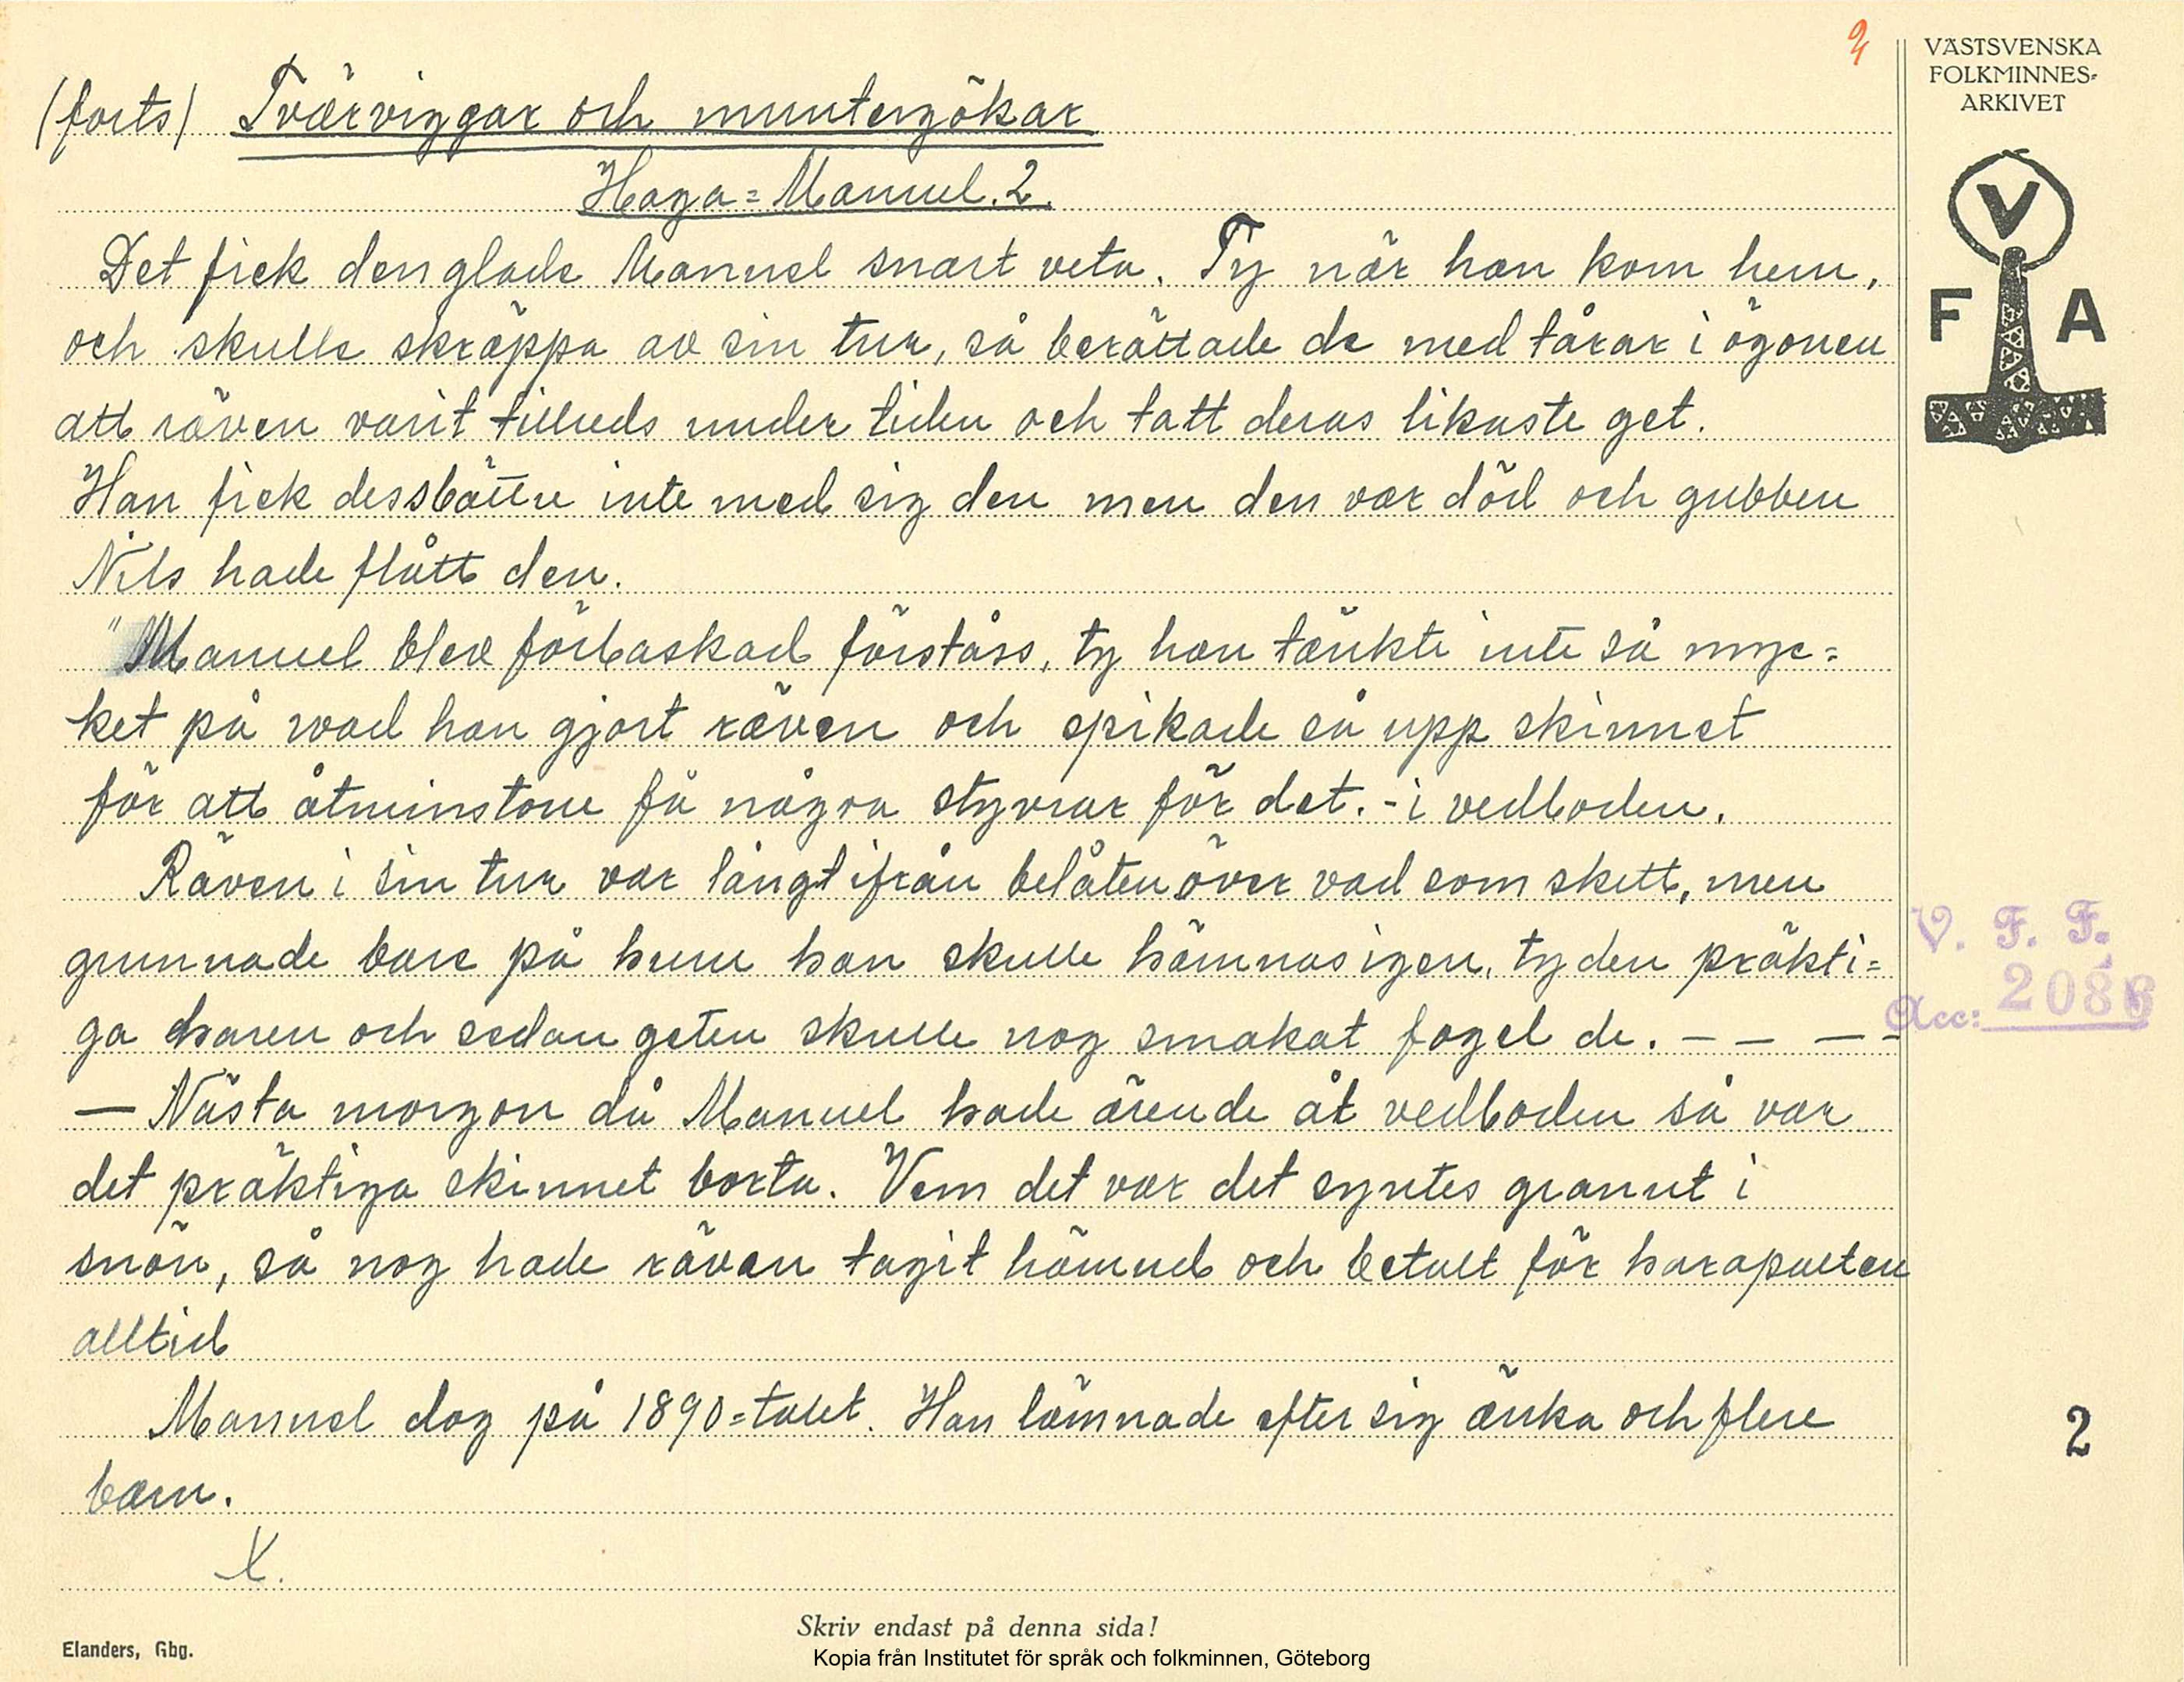 2
VÄSTSVENSKA
FOLKMINNES-
ARKIVET
V
F A
(forts) Tvärviggar och muntergökar
Haga=Manuel. 2.
Det fick den glade Manuel snart veta. Ty när han kom hem,
och skulle skräppa av sin tur, så berättade de med tårar i ögonen
att räven varit tillreds under tiden och tatt deras likaste get.
Han fick dessbättre inte med sig den men den var död och gubben
Nils hade flått den.
"Manuel blev förbaskad förståss, ty han tänkte inte så myc=
ket på vad han gjort räven och spikade så upp skinnet
för att åtminstone få några styvrar för det. - i vedboden.
Räven i sin tur var långt ifrån belåten över vad som skett, men
grunnade bare på huru han skulle hämnas igen, ty den präkti=
ga haren och sedan geten skulle nog smakat fogel de. – – – –
— Nästa morgon då Manuel hade ärende åt vedboden så var
det präktiga skinnet borta. Vem det var det syntes grannt i
snön, så nog hade räven tagit hämnd och betalt för harapalten
alltid
Manuel dog på 1890=talet. Han lämnade efter sig änka och flere
barn.
X.
V. F. F.
Acc: 2086
2
Skriv endast på denna sida!
Elanders, Gbg.
Kopia från Institutet för språk och folkminnen, Göteborg